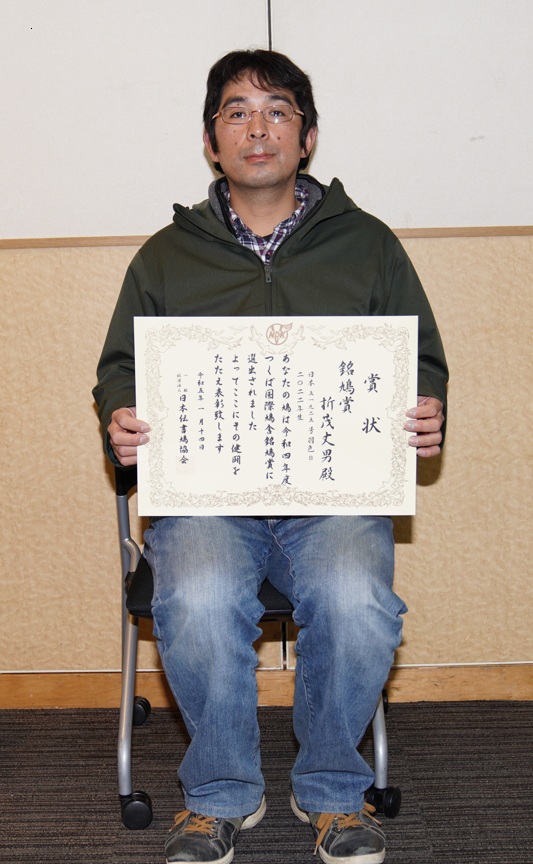 賞状
銘鳩賞
折茂丈男殿
二〇二二年生
あなたの鳩は令和四年度
つくば国際鳩舎銘鳩賞に
選出されました
よってここにその健闘を
たたえ表彰致します
令和五年一月十四日
一般
社団法人
日本伝書鳩協会